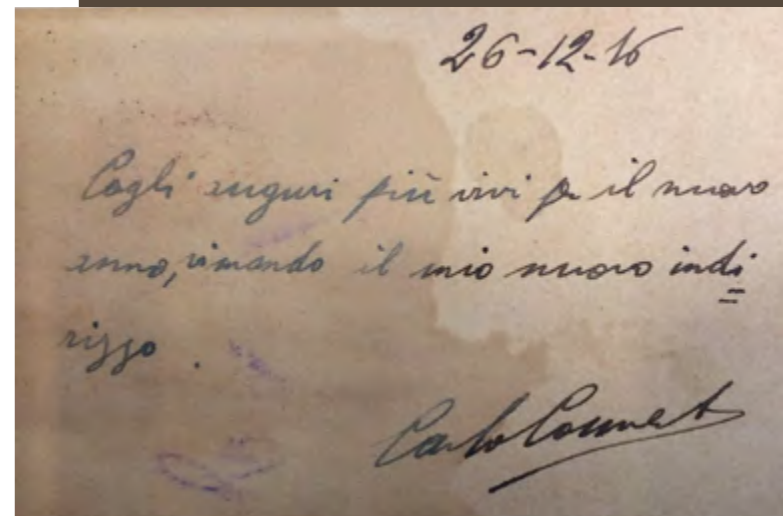 26-12-16
Cogli auguri più vivi per il nuovo
anno, rimando il mio nuovo indi
rizzo.
Carlo